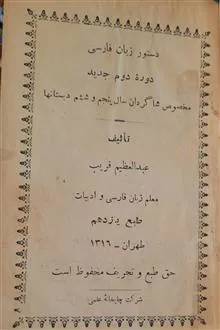 دستور زبان فارسی
دورهٔ دوم جدید
مخصوص شاگردان سال پنجم و ششم دبستانها
تألیف
عبدالعظیم قریب
معلم زبان فارسی و ادبیات
طبع یازدهم
طهران - ۱۳۱۶
حق طبع و تحریف محفوظ است
شرکت چاپخانهٔ علمی